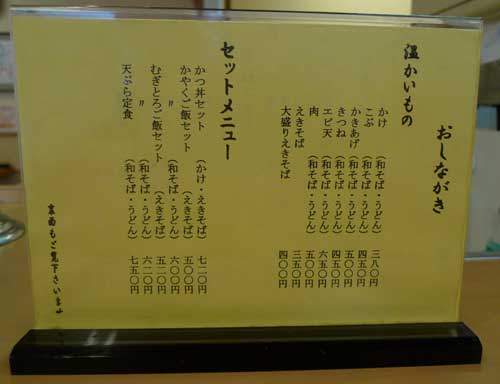 おしながき
温かいもの
かけ （和そば・うどん） 三八〇円
こぶ （和そば・うどん） 四五〇円
かきあげ （和そば・うどん） 四五〇円
きつね （和そば・うどん） 五〇〇円
エビ天 （和そば・うどん） 六五〇円
肉 （和そば・うどん） 五〇〇円
えきそば 三五〇円
大盛りえきそば 四〇〇円
セットメニュー
かつ丼セット （かけ・えきそば） 七二〇円
かやくご飯セット （えきそば） 五〇〇円
〃 （和そば・うどん） 六〇〇円
むぎとろご飯セット （えきそば） 五二〇円
〃 （和そば・うどん） 六二〇円
天ぷら定食 （和そば・うどん） 七五〇円
裏面もご覧下さいませ